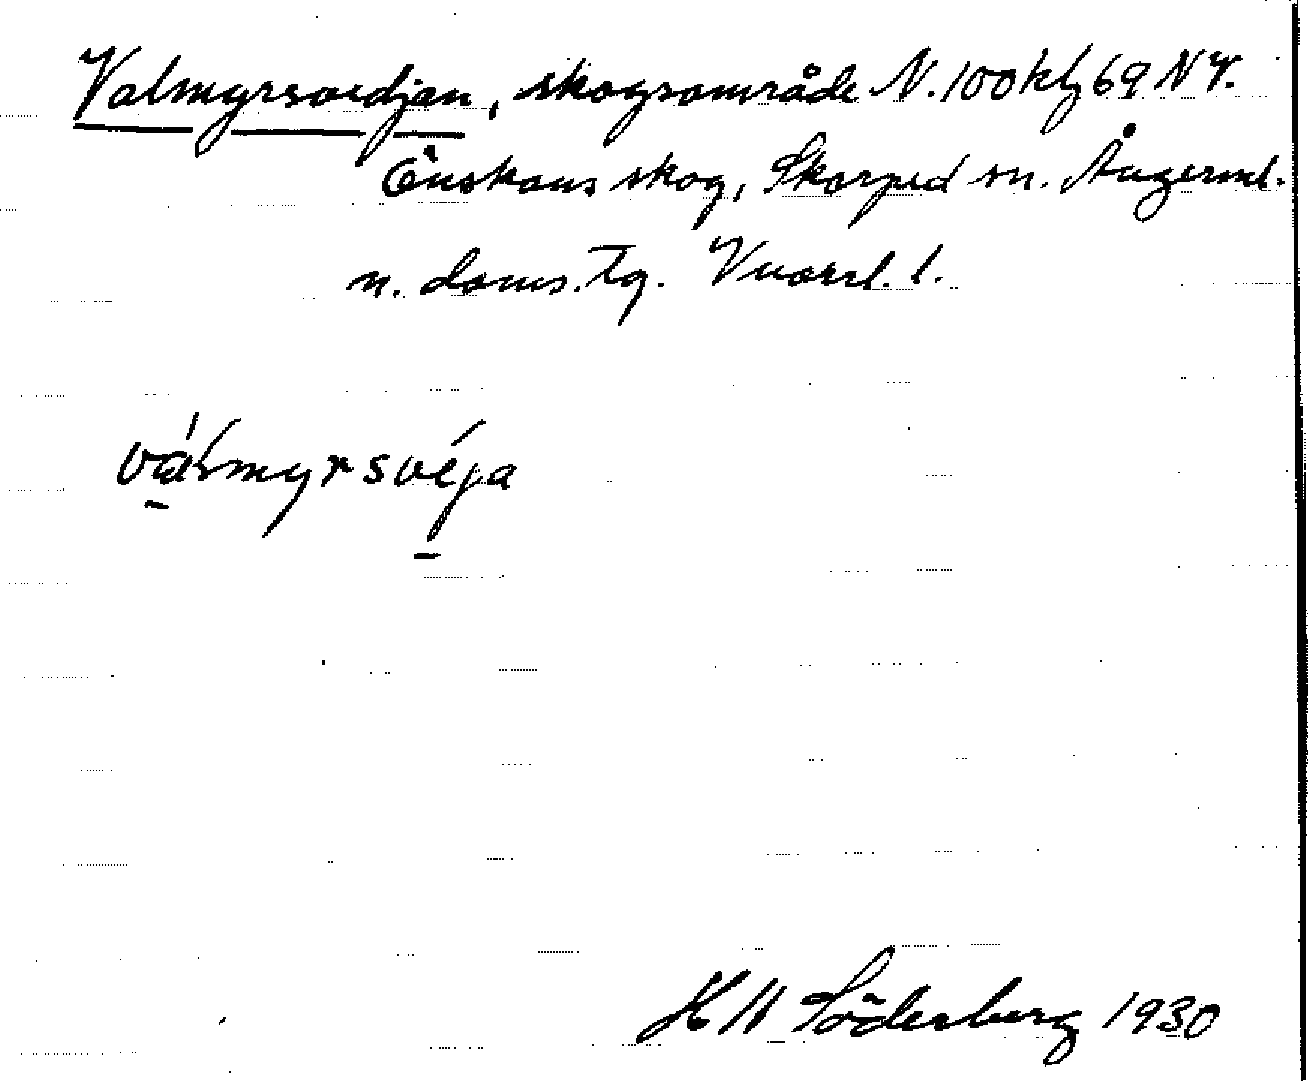 Valmyrsvedjan, skogsområde N. 100 kbl 69 NV.
Önskans skog, Skorped sn. Ångerml.
n. doms. tg.
válmyrsvéja
KH Söderberg 1930